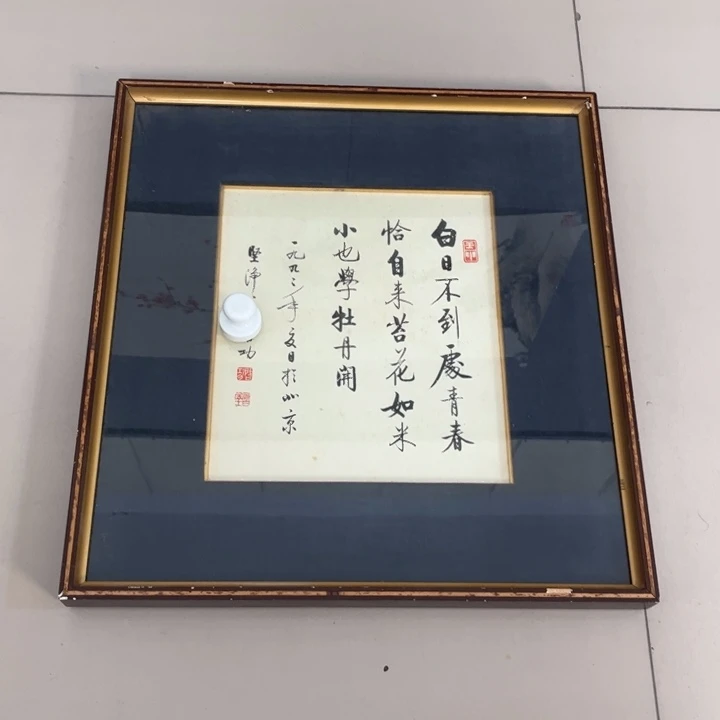 白日不到處青春
恰自来苔花如米
小也學牡丹開
一九九二年夏日於北京
堅淨 功